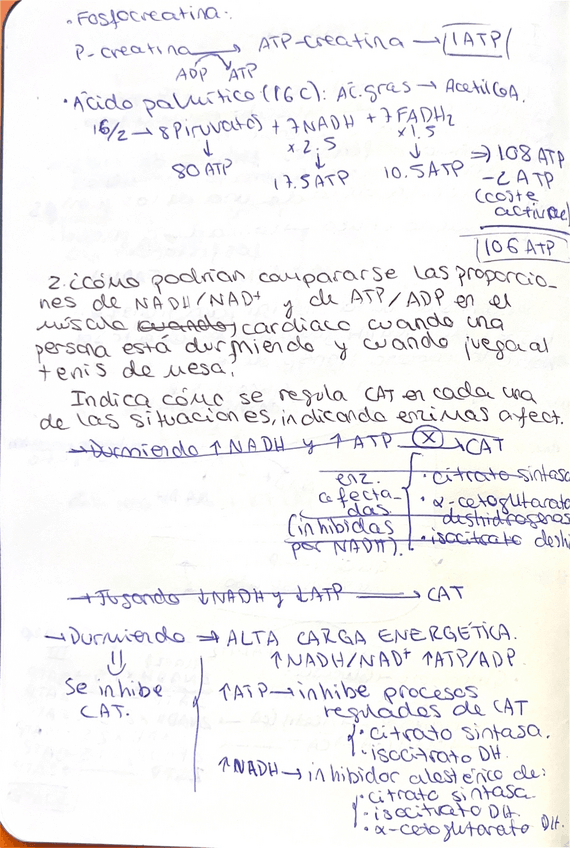 · Fosfocreatina:
P-creatina → ATP-creatina → 1ATP
ADP ATP
· Ácido palmítico (16C): Ác.gras → AcetilCoA.
16/2 → 8Piruvatos + 7NADH + 7FADH₂
x 2.5 x 1.5
↓ ↓ ↓
80 ATP 17.5ATP 10.5ATP ⇒ 108 ATP
- 2 ATP
(coste
activac)
106 ATP
2. ¿cómo podrían compararse las proporcio-
nes de NADH/NAD⁺ y de ATP/ADP en el
músculo cuando cardíaco cuando una
persona está durmiendo y cuando juega al
tenis de mesa?
Indica cómo se regula CAT en cada una
de las situaciones, indicando enzimas afect.
→ Durmiendo ↑ NADH y ↑ ATP (X)→ CAT
enz.
afecta-
das
(inhibidas
por NADH).
· citrato sintasa
· α-cetoglutarato
deshidrogenas
· isocitrato deshi
→ Jugando ↓NADH y ↓ATP → CAT
→ Durmiendo ⇒ ALTA CARGA ENERGÉTICA.
↑NADH/NAD⁺ ↑ATP/ADP
⇓
Se inhibe
CAT.
↑ATP → inhibe procesos
regulados de CAT
· citrato sintasa.
· isocitrato DH.
↑NADH → inhibidor alostérico de:
· citrato sintasa.
· isocitrato DH.
· α-cetoglutarato DH.